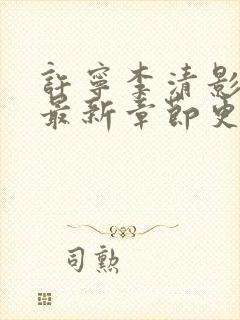 許寧李清影
最新章節更
司勲